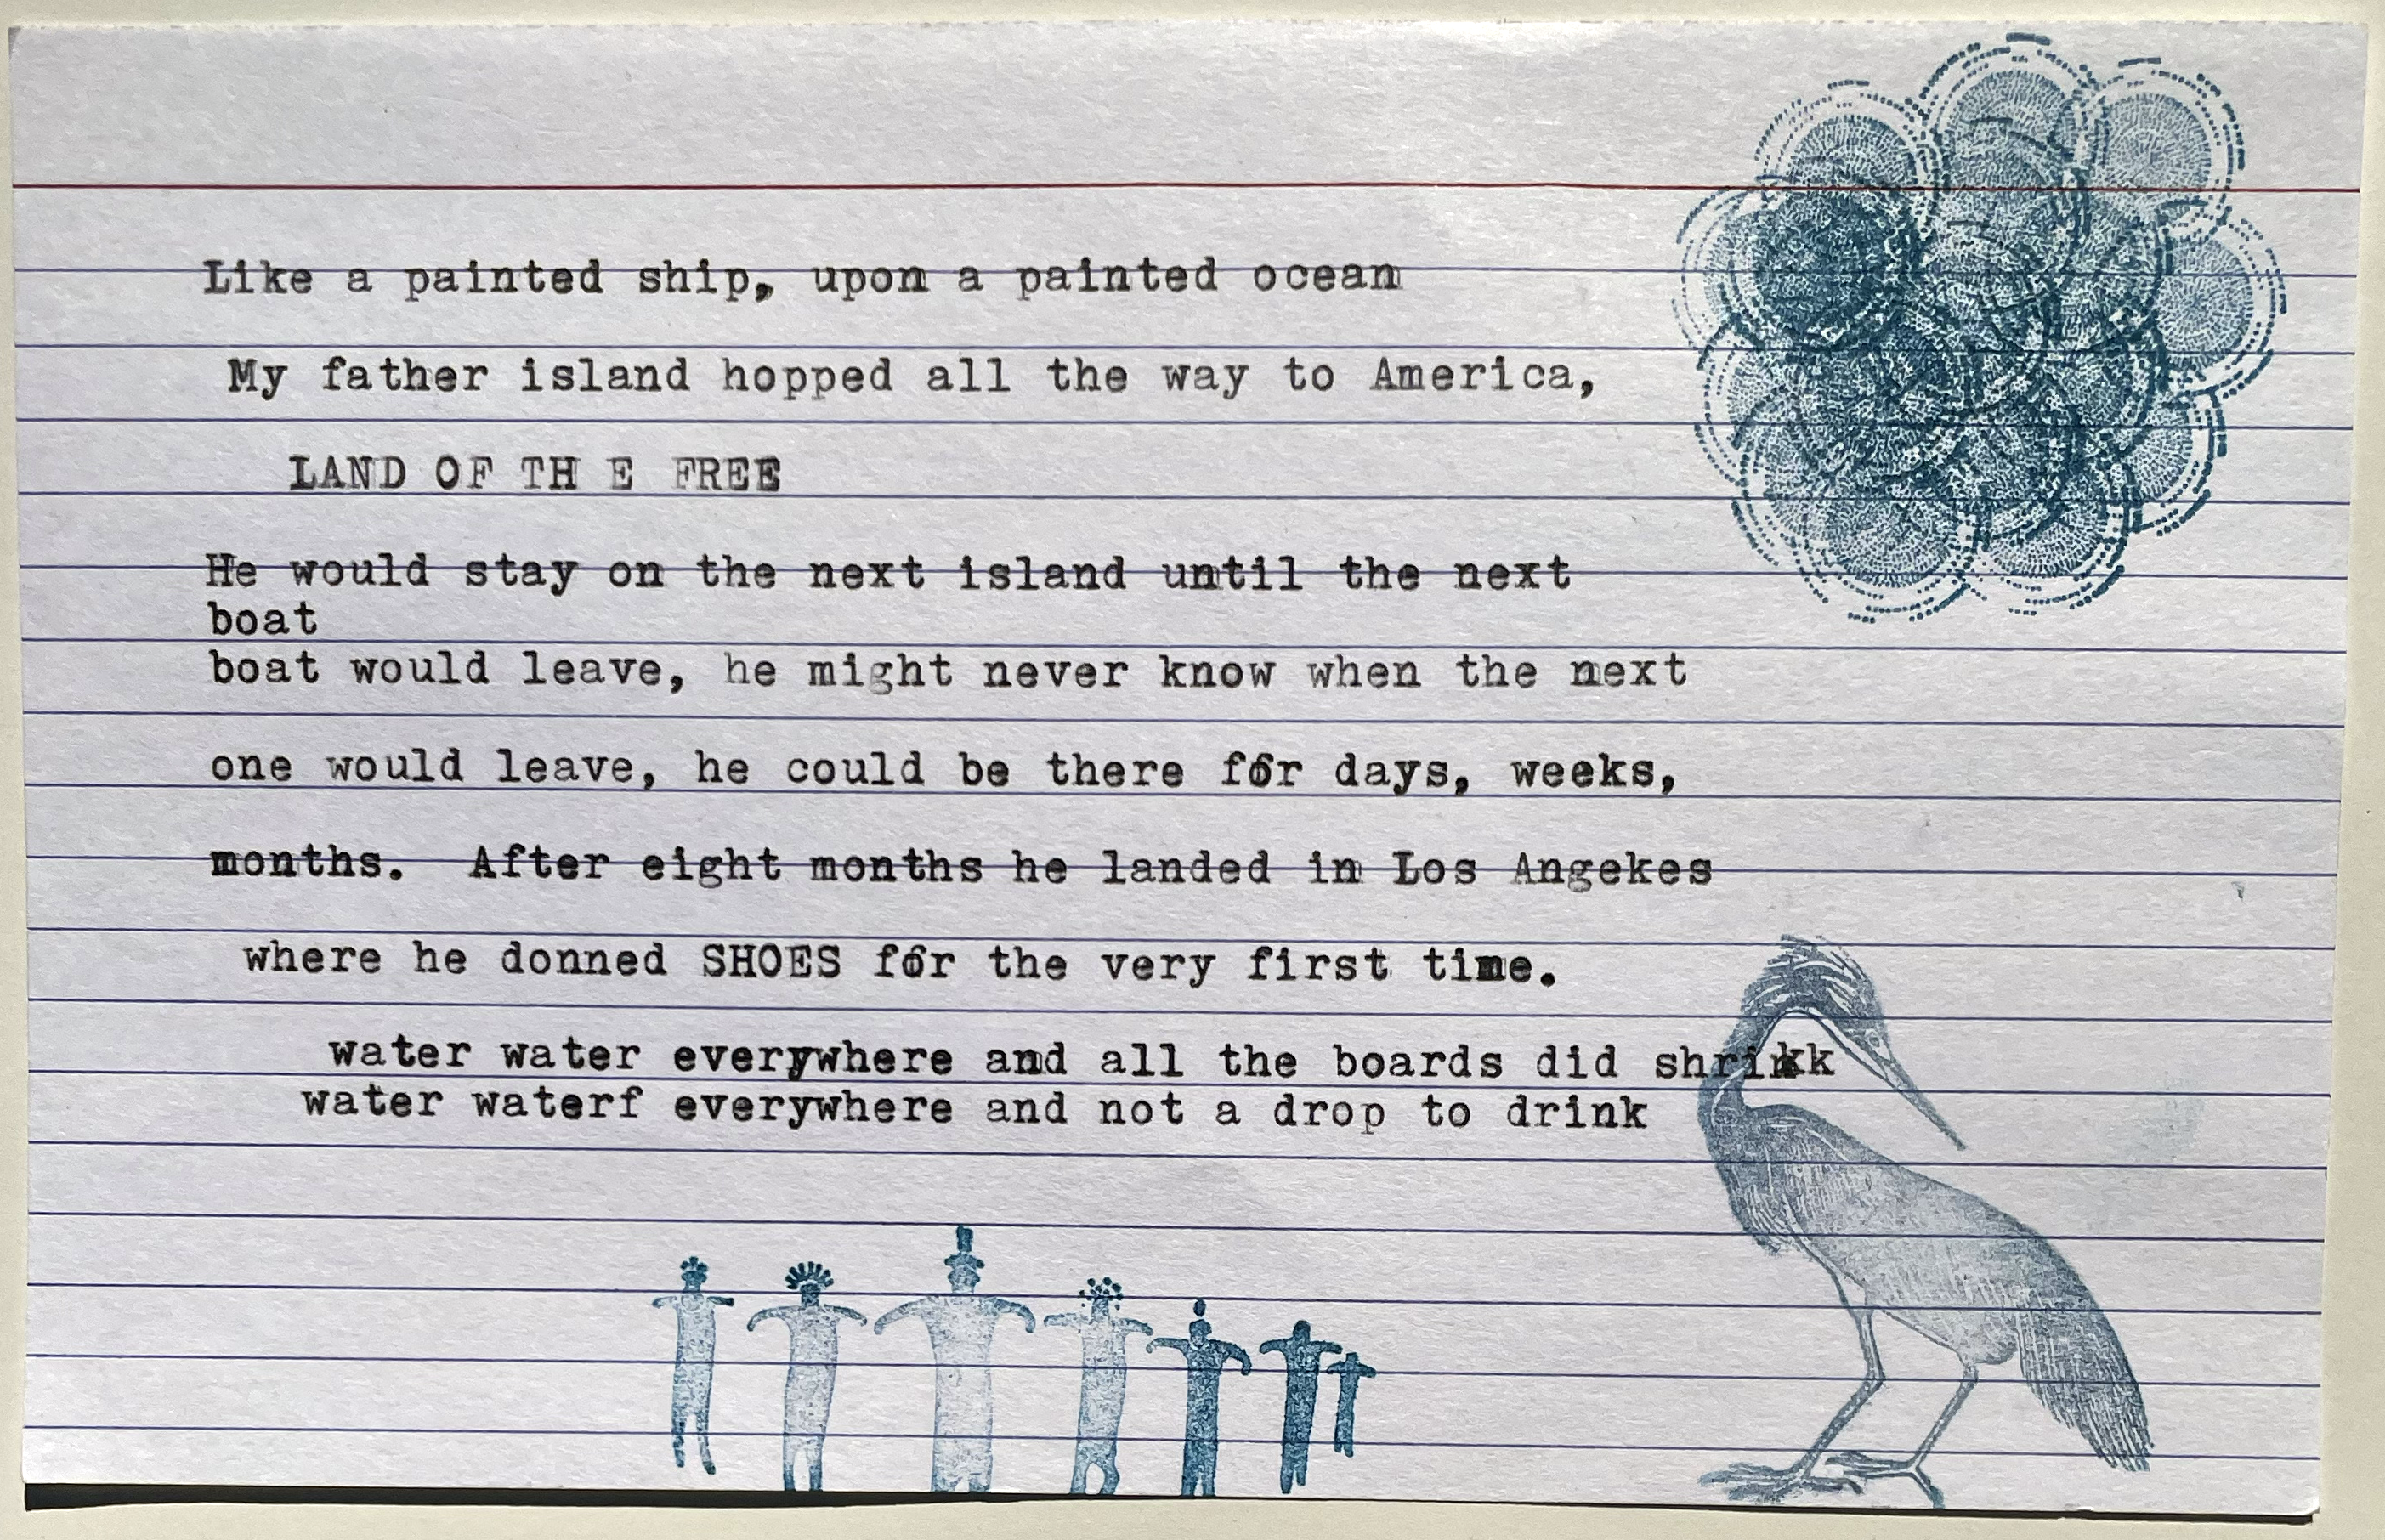 Like a painted ship, upon a painted ocean
My father island hopped all the way to America,
LAND OF TH E FREE
He would stay on the next island until the next
boat
boat would leave, he might never know when the next
one would leave, he could be there for days, weeks,
months. After eight months he landed in Los Angekes
where he donned SHOES for the very first time.
water water everywhere and all the boards did shrikk
water waterf everywhere and not a drop to drink